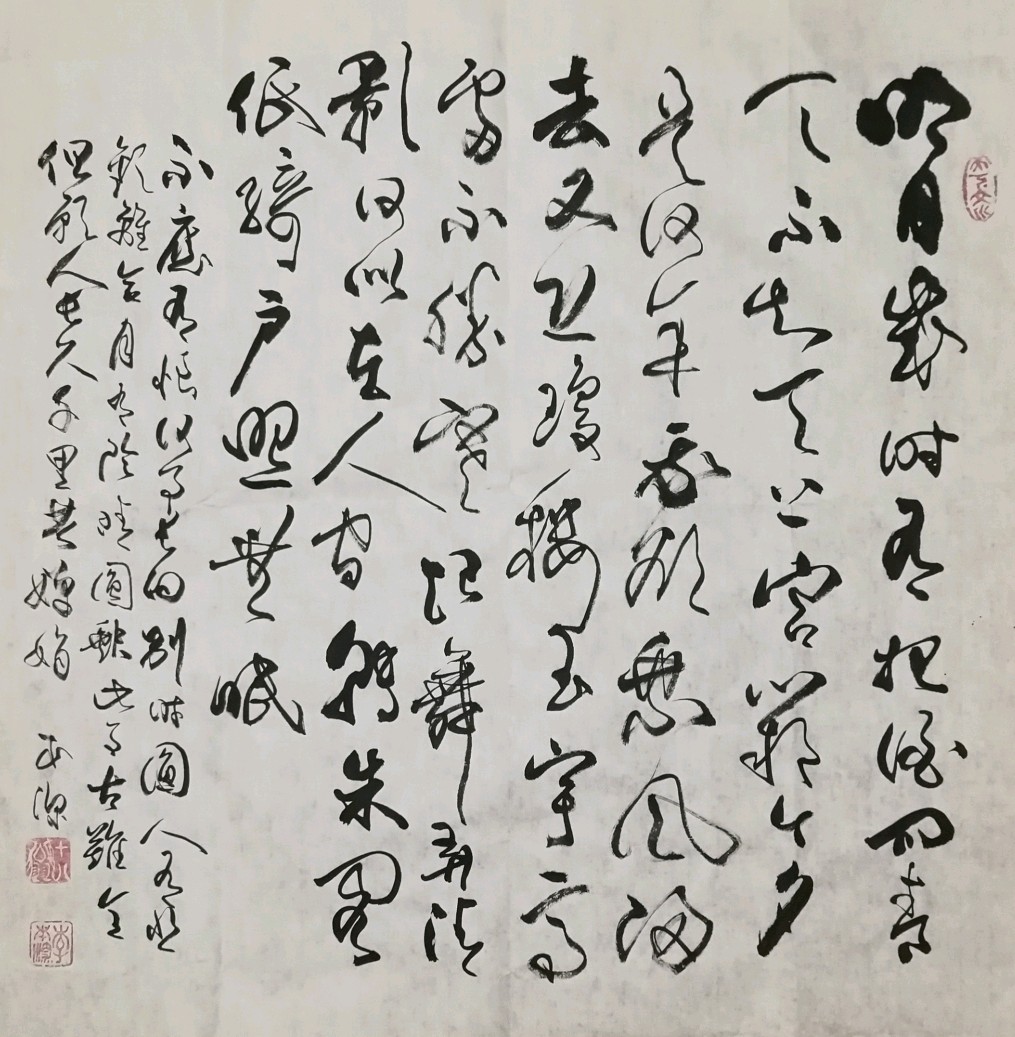 明月幾时有把酒问青
天不知天上宫闕今夕
是何年我欲乘风归
去又恐瓊樓玉宇高
處不勝寒起舞弄清
影何似在人间轉朱阁
低绮户照無眠
不應有恨何事长向别时圆人有悲
歡離合月有陰晴圆缺此事古難全
但愿人长久千里共嬋娟